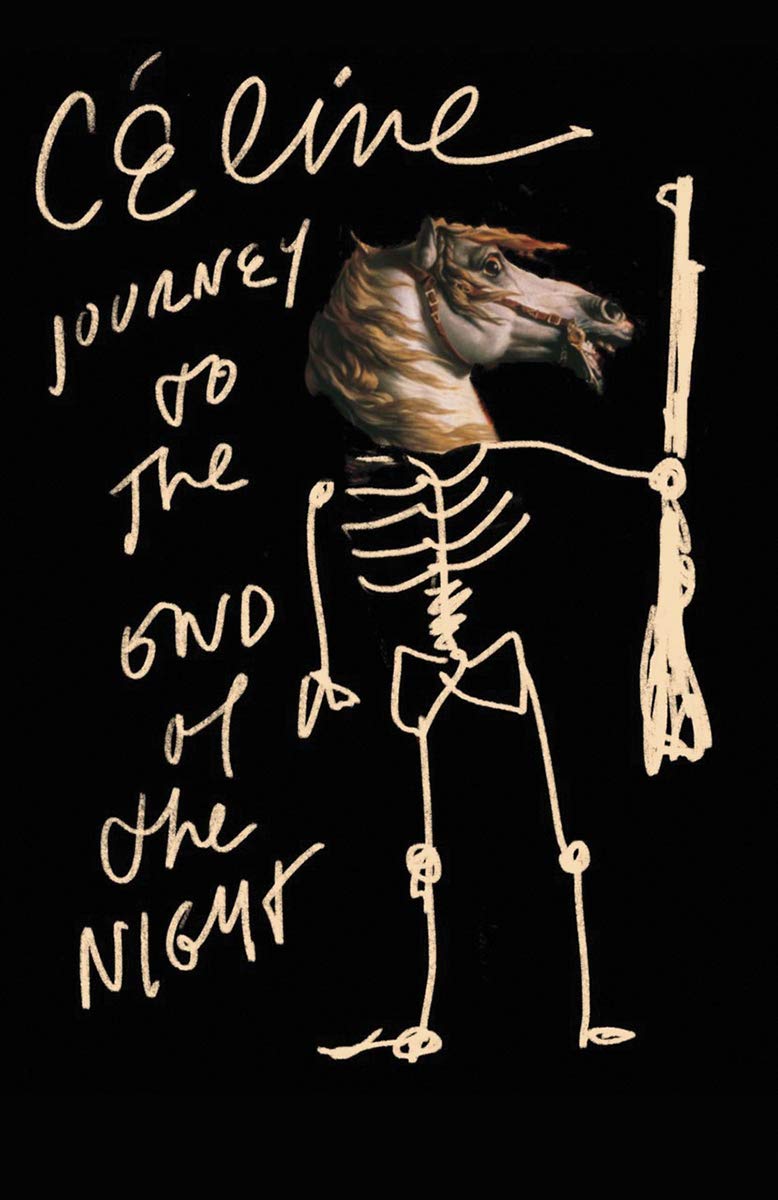 Céline
JOURNEY
to
The
END
of
the
NIGHT